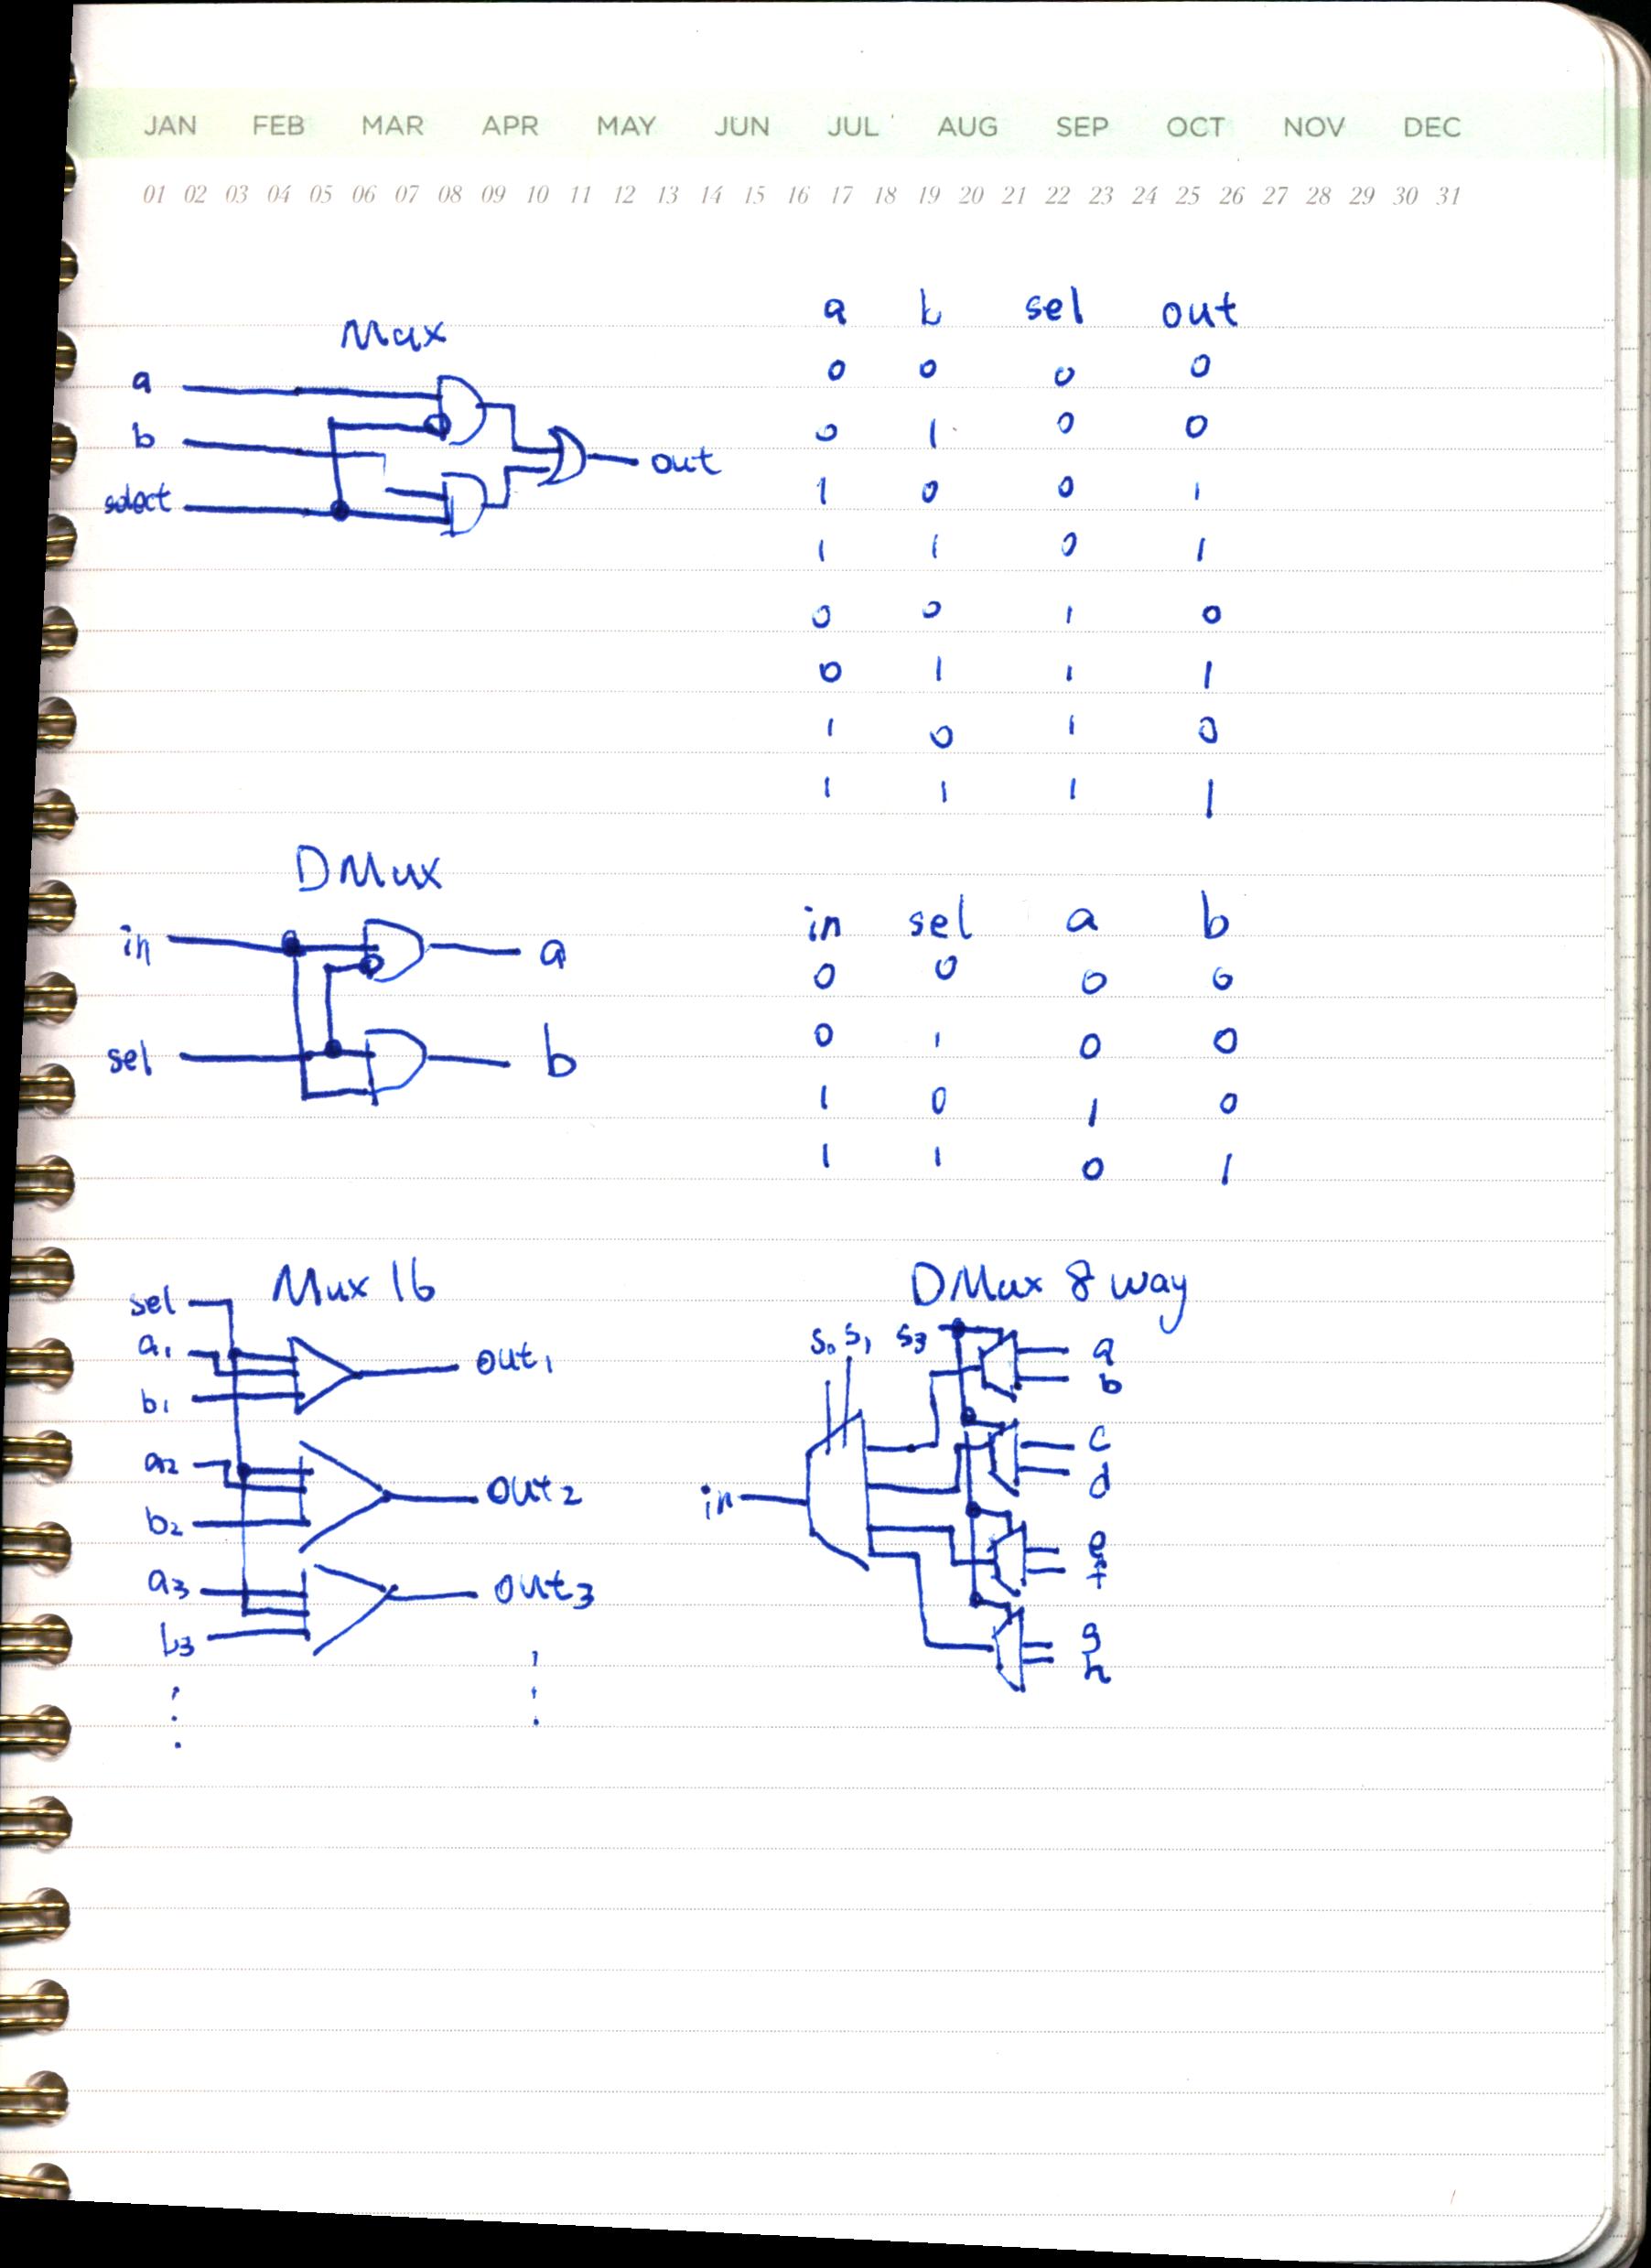 JAN FEB MAR APR MAY JUN JUL AUG SEP OCT NOV DEC
01 02 03 04 05 06 07 08 09 10 11 12 13 14 15 16 17 18 19 20 21 22 23 24 25 26 27 28 29 30 31
Mux
a
b
select
out
a b sel out
0 0 0 0
0 1 0 0
1 0 0 1
1 1 0 1
0 0 1 0
0 1 1 1
1 0 1 0
1 1 1 1
DMux
in
sel
a
b
in sel a b
0 0 0 0
0 1 0 0
1 0 1 0
1 1 0 1
Mux 16
sel
a1
b1
out1
a2
b2
out2
a3
b3
out3
DMux 8 way
S0 S1 S3
in
a
b
c
d
e
f
g
h